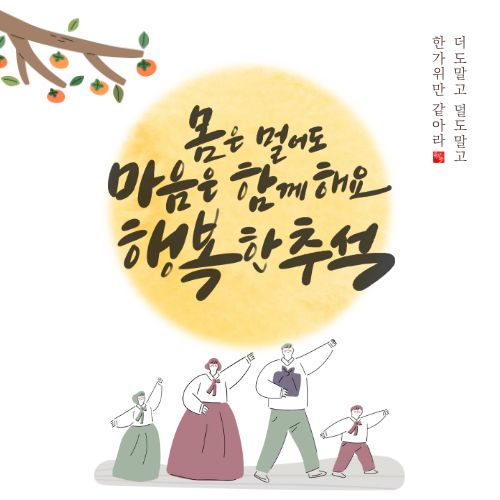 몸은 멀어도
마음은 함께해요
행복한 추석
더도말고 덜도말고
한가위만 같아라